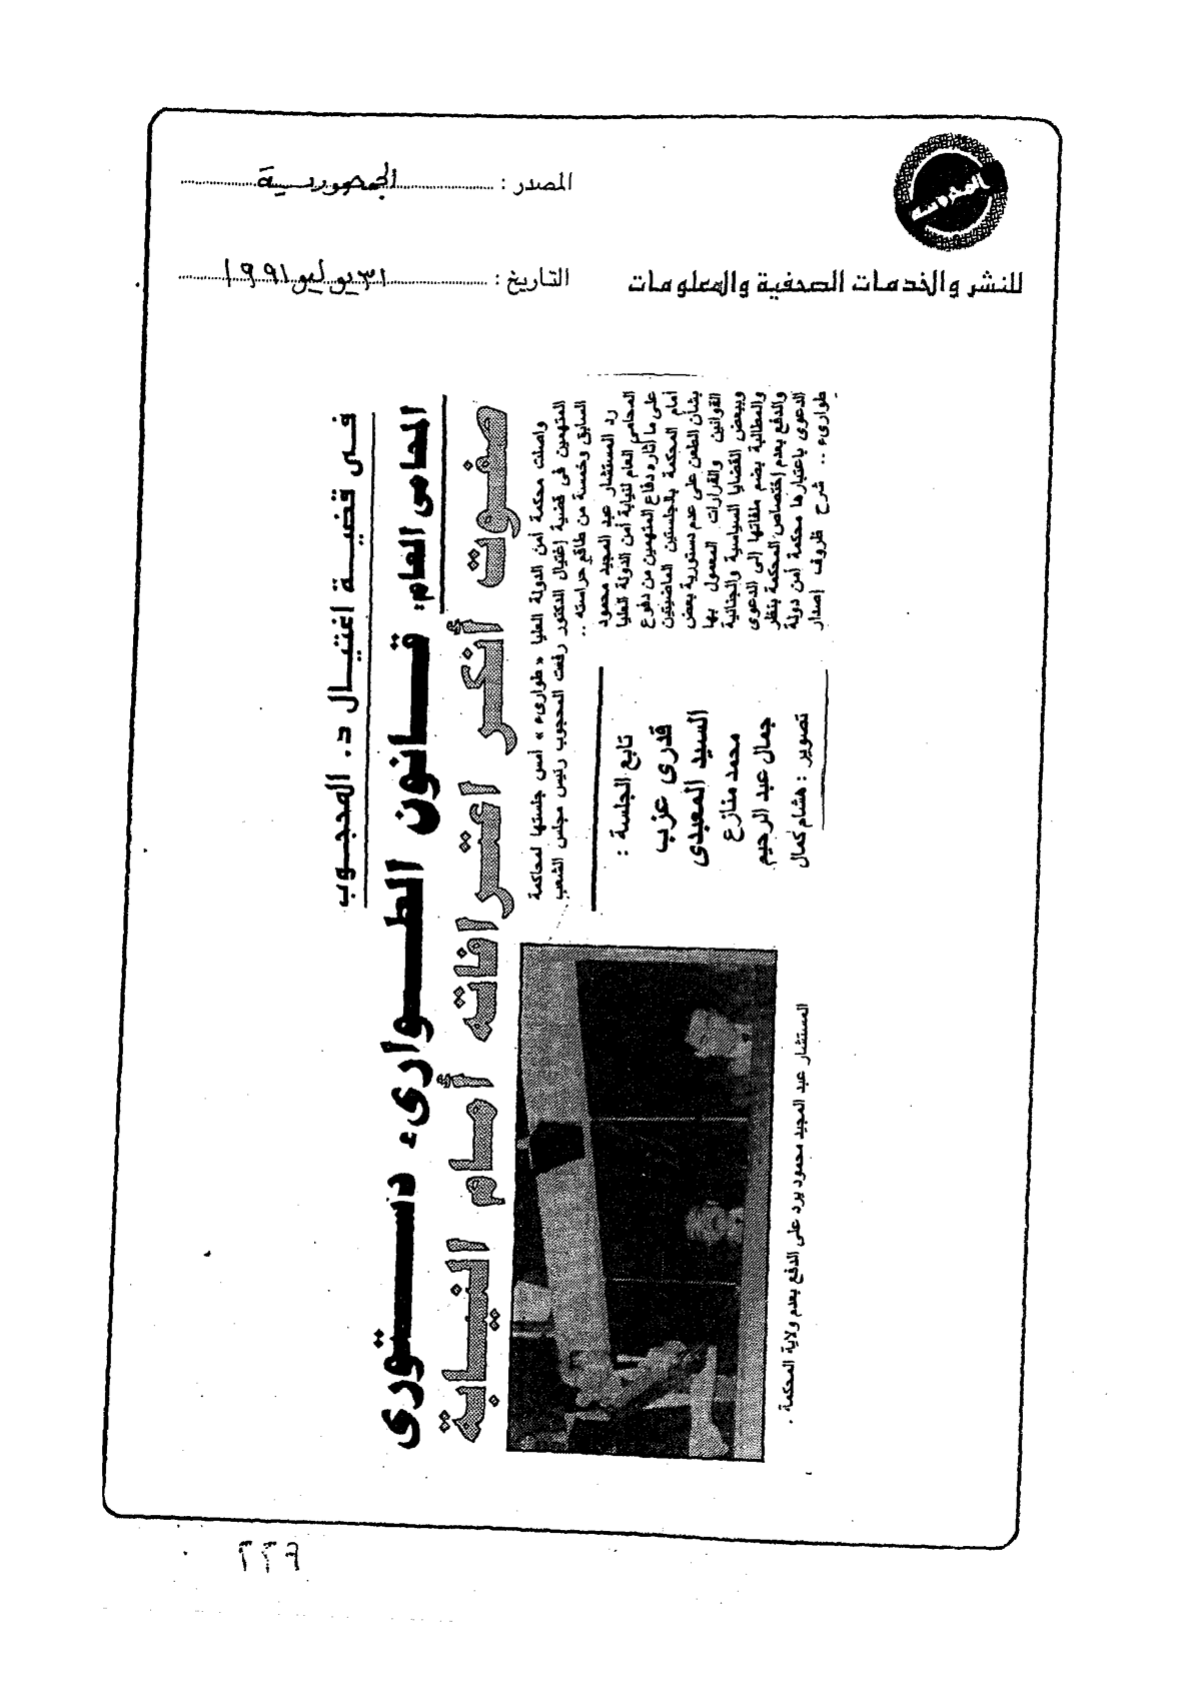 المحروسة
المصدر : الجمهورية
للنشر والخدمات الصحفية والمعلومات
التاريخ : ٣١ يوليو ١٩٩١
فى قضية اغتيال د. المحجوب
المحامى العام:
قانون الطوارىء دستورى
صفوت أنكر اعترافاته أمام النيابة
واصلت محكمة أمن الدولة العليا « طوارىء » أمس جلستها لمحاكمة
المتهمين فى قضية إغتيال الدكتور رفعت المحجوب رئيس مجلس الشعب
السابق وخمسة من طاقم حراسته ..
رد المستشار عبد المجيد محمود
المحامى العام لنيابة أمن الدولة العليا
على ما أثاره دفاع المتهمين من دفوع
أمام المحكمة بالجلستين الماضيتين
بشأن الطعن على عدم دستورية بعض
القوانين والقرارات المعمول بها
وببعض القضايا السياسية والجنائية
والمطالبة بضم ملفاتها إلى الدعوى
والدفع بعدم إختصاص المحكمة بنظر
الدعوى باعتبارها محكمة أمن دولة
طوارىء .. شرح ظروف إصدار
تابع الجلسة :
قدرى عزب
السيد المعبدى
محمد منازع
جمال عبد الرحيم
تصوير : هشام كمال
المستشار عبد المجيد محمود يرد على الدفع بعدم ولاية المحكمة .
٢٢٩